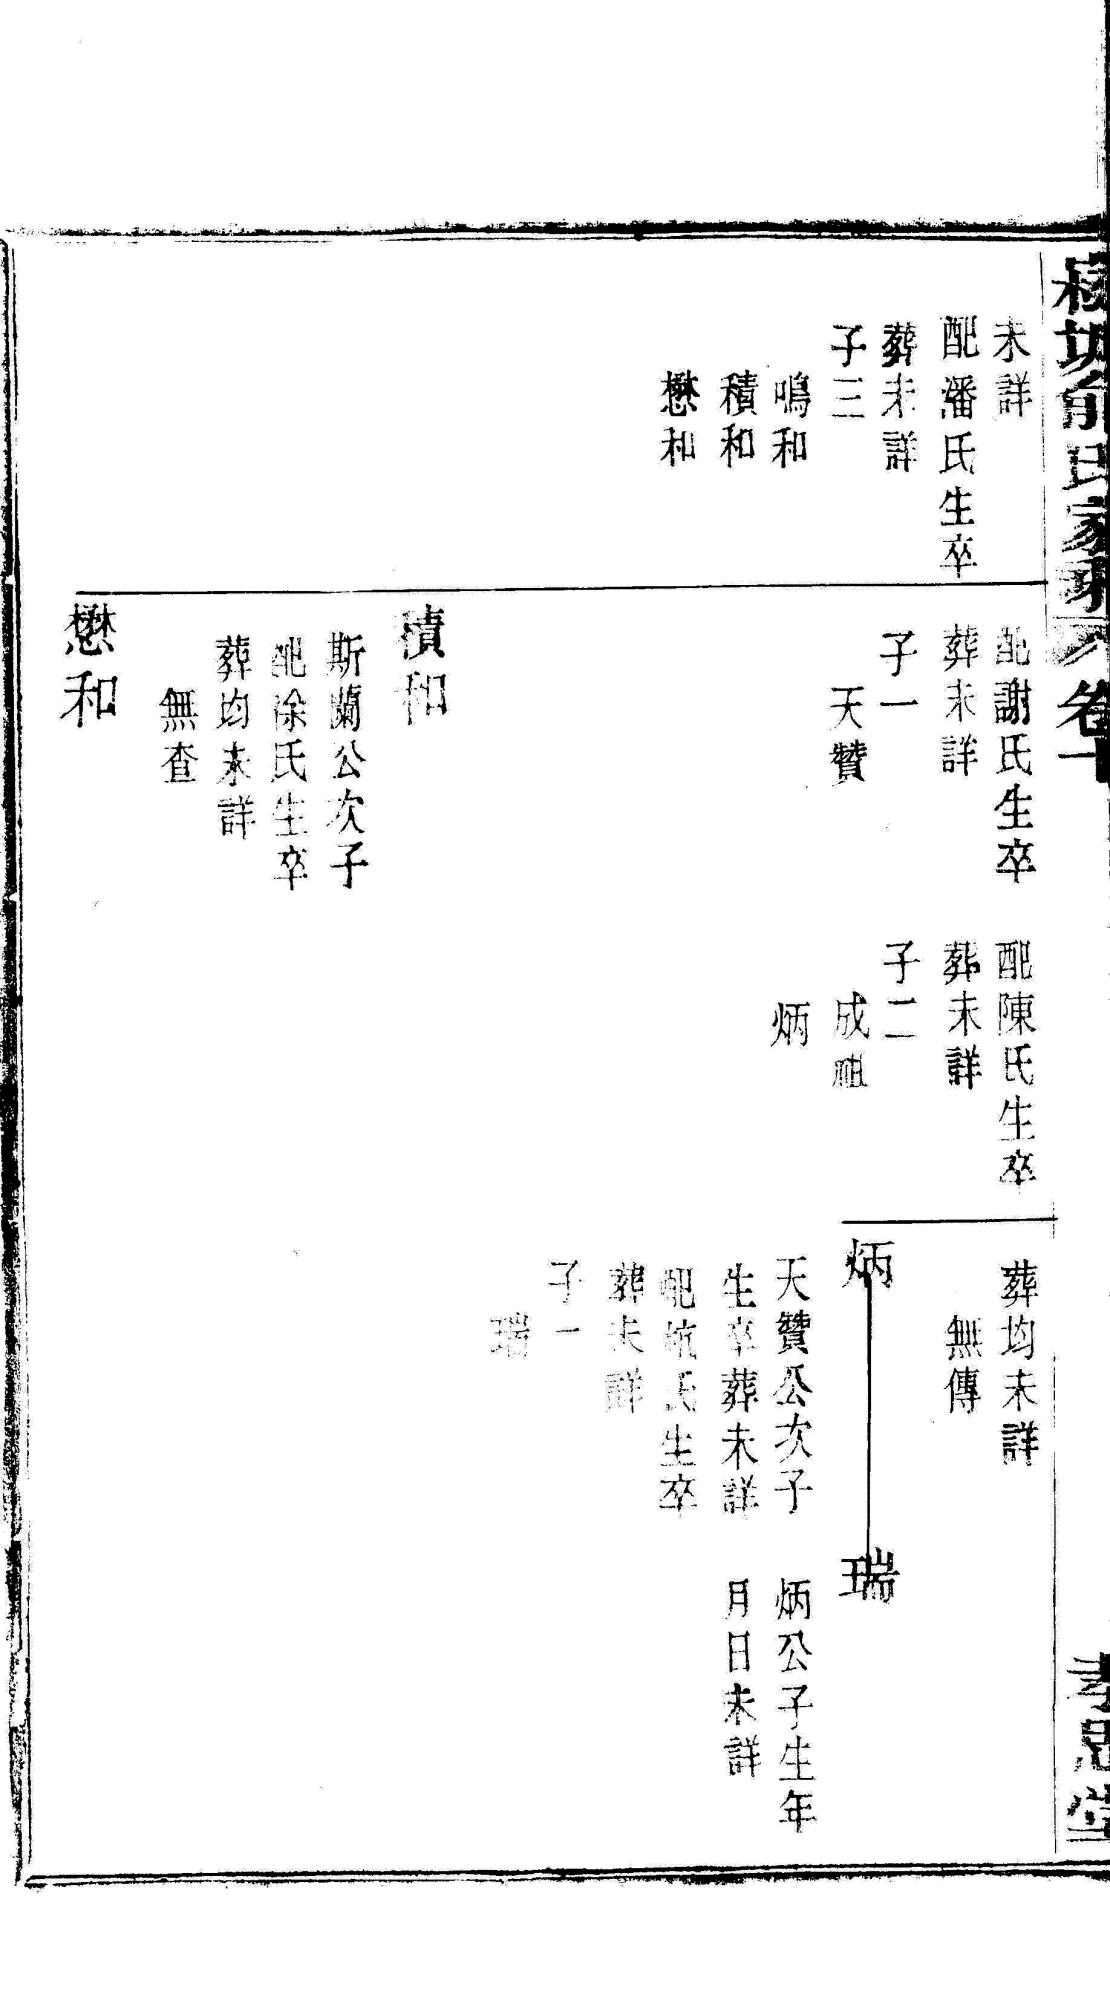 氏家乘
卷十
孝思堂
未詳
配潘氏生卒
葬未詳
子三
鳴和
積和
懋和
配謝氏生卒
葬未詳
子一
天贊
積和
斯蘭公次子
配徐氏生卒
葬均未詳
無查
懋和
配陳氏生卒
葬未詳
子二
成祖
炳
葬均未詳
無傳
炳
天贊公次子
生卒葬未詳
配杭氏生卒
葬未詳
子一
瑞
瑞
炳公子生年
月日未詳